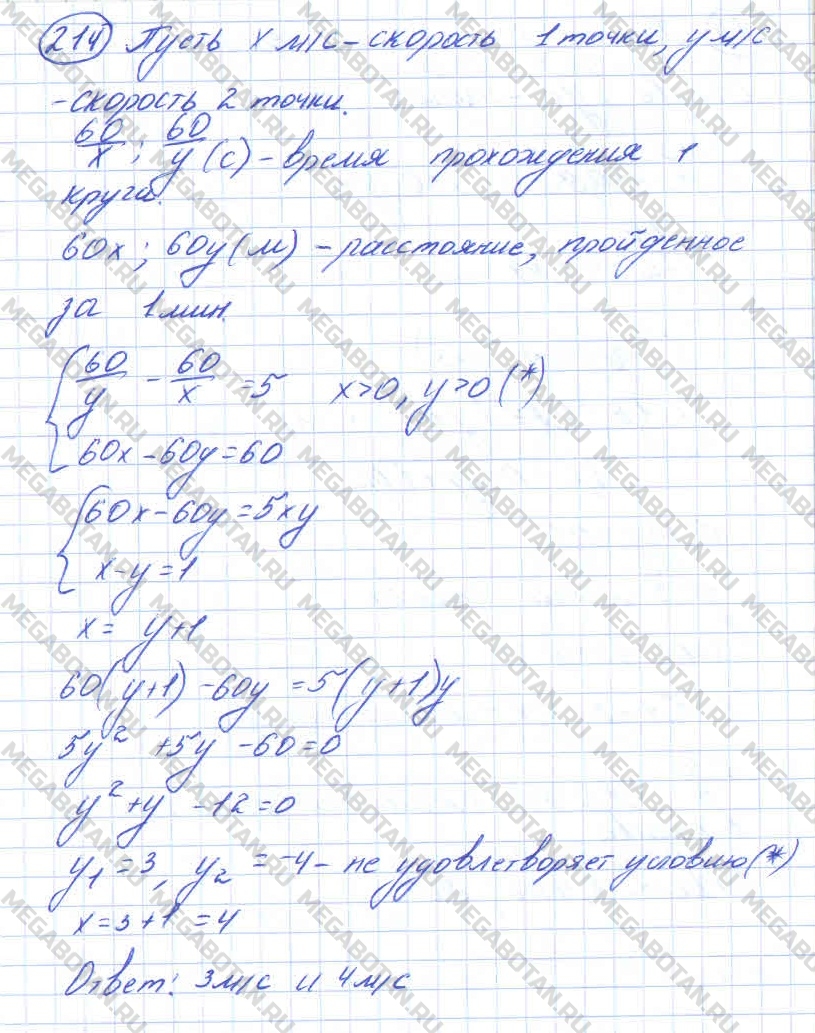 214 Пусть x м/с – скорость 1 точки, y м/с
– скорость 2 точки.
60/x ; 60/y (с) – время прохождения 1
круга.
60x ; 60y (м) – расстояние, пройденное
за 1 мин.
{ 60/y - 60/x = 5 x>0, y>0 (*)
60x - 60y = 60
{ 60x - 60y = 5xy
x - y = 1
x = y+1
60(y+1) - 60y = 5(y+1)y
5y² + 5y - 60 = 0
y² + y - 12 = 0
y₁ = 3, y₂ = -4 – не удовлетворяет условию (*)
x = 3 + 1 = 4
Ответ: 3 м/с и 4 м/с
MEGABOTAN.RU